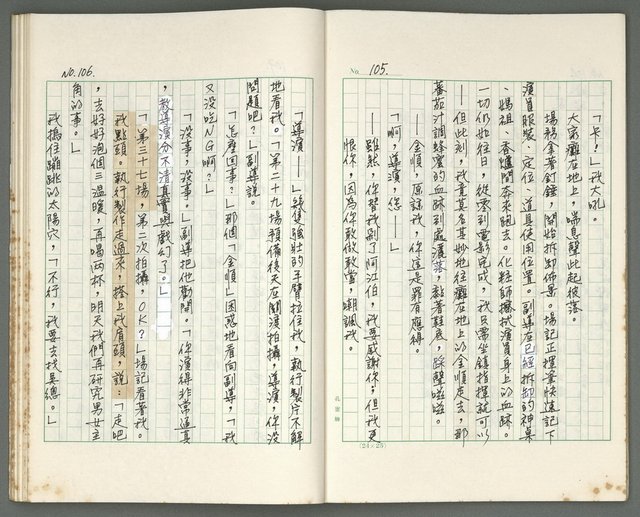 No 105.
「卡！」我大吼。
大家癱在地上，喘息聲此起彼落。
場務拿著釘錘，開始拆卸佈景。場記正擇要快速記下
演員服裝、定位、道具使用位置。副導在已經拆卸的神桌
、媽祖、香爐間奔來跑去。化粧師擦拭演員身上的血跡。
一切仍如往日，從零到電影完成，我只需坐鎮指揮就可以
——但此刻，我竟莫名其妙地往癱在地上的金順走去，那
蕃茄汁調蜂蜜的血跡到處灑落，黏著鞋底，踩聲啦啦。
——金順，原諒我，你這是罪有應得。
「啊，導演，您——」
——雖然，你替我刷了阿江伯，我要感謝你，但我更
恨你，因為你敢做敢當，嘲諷我。
(24×25)
No.106.
「導演——」幾隻強壯的手臂拉住我，執行製片不解
地看我。「第二十九場預備後天在關渡拍攝，導演，你沒
問題吧？」副導說。
「怎麼回事？」那個「金順」困惑地看向副導，「我
又沒吃NG啊？」
「沒事，沒事。」副導把他勸開。「你演得非常逼真
，教導演分不清真實與戲幻了。」
「第三十七場，第二次拍攝，OK？」場記看著我。
我點頭。執行製作走過來，搭上我肩頭，說：「走吧
，去好好泡個三溫暖，再喝兩杯，明天我們再研究男女主
角的事。」
我摀住蹦跳的太陽穴，「不行，我要去找吳總。」